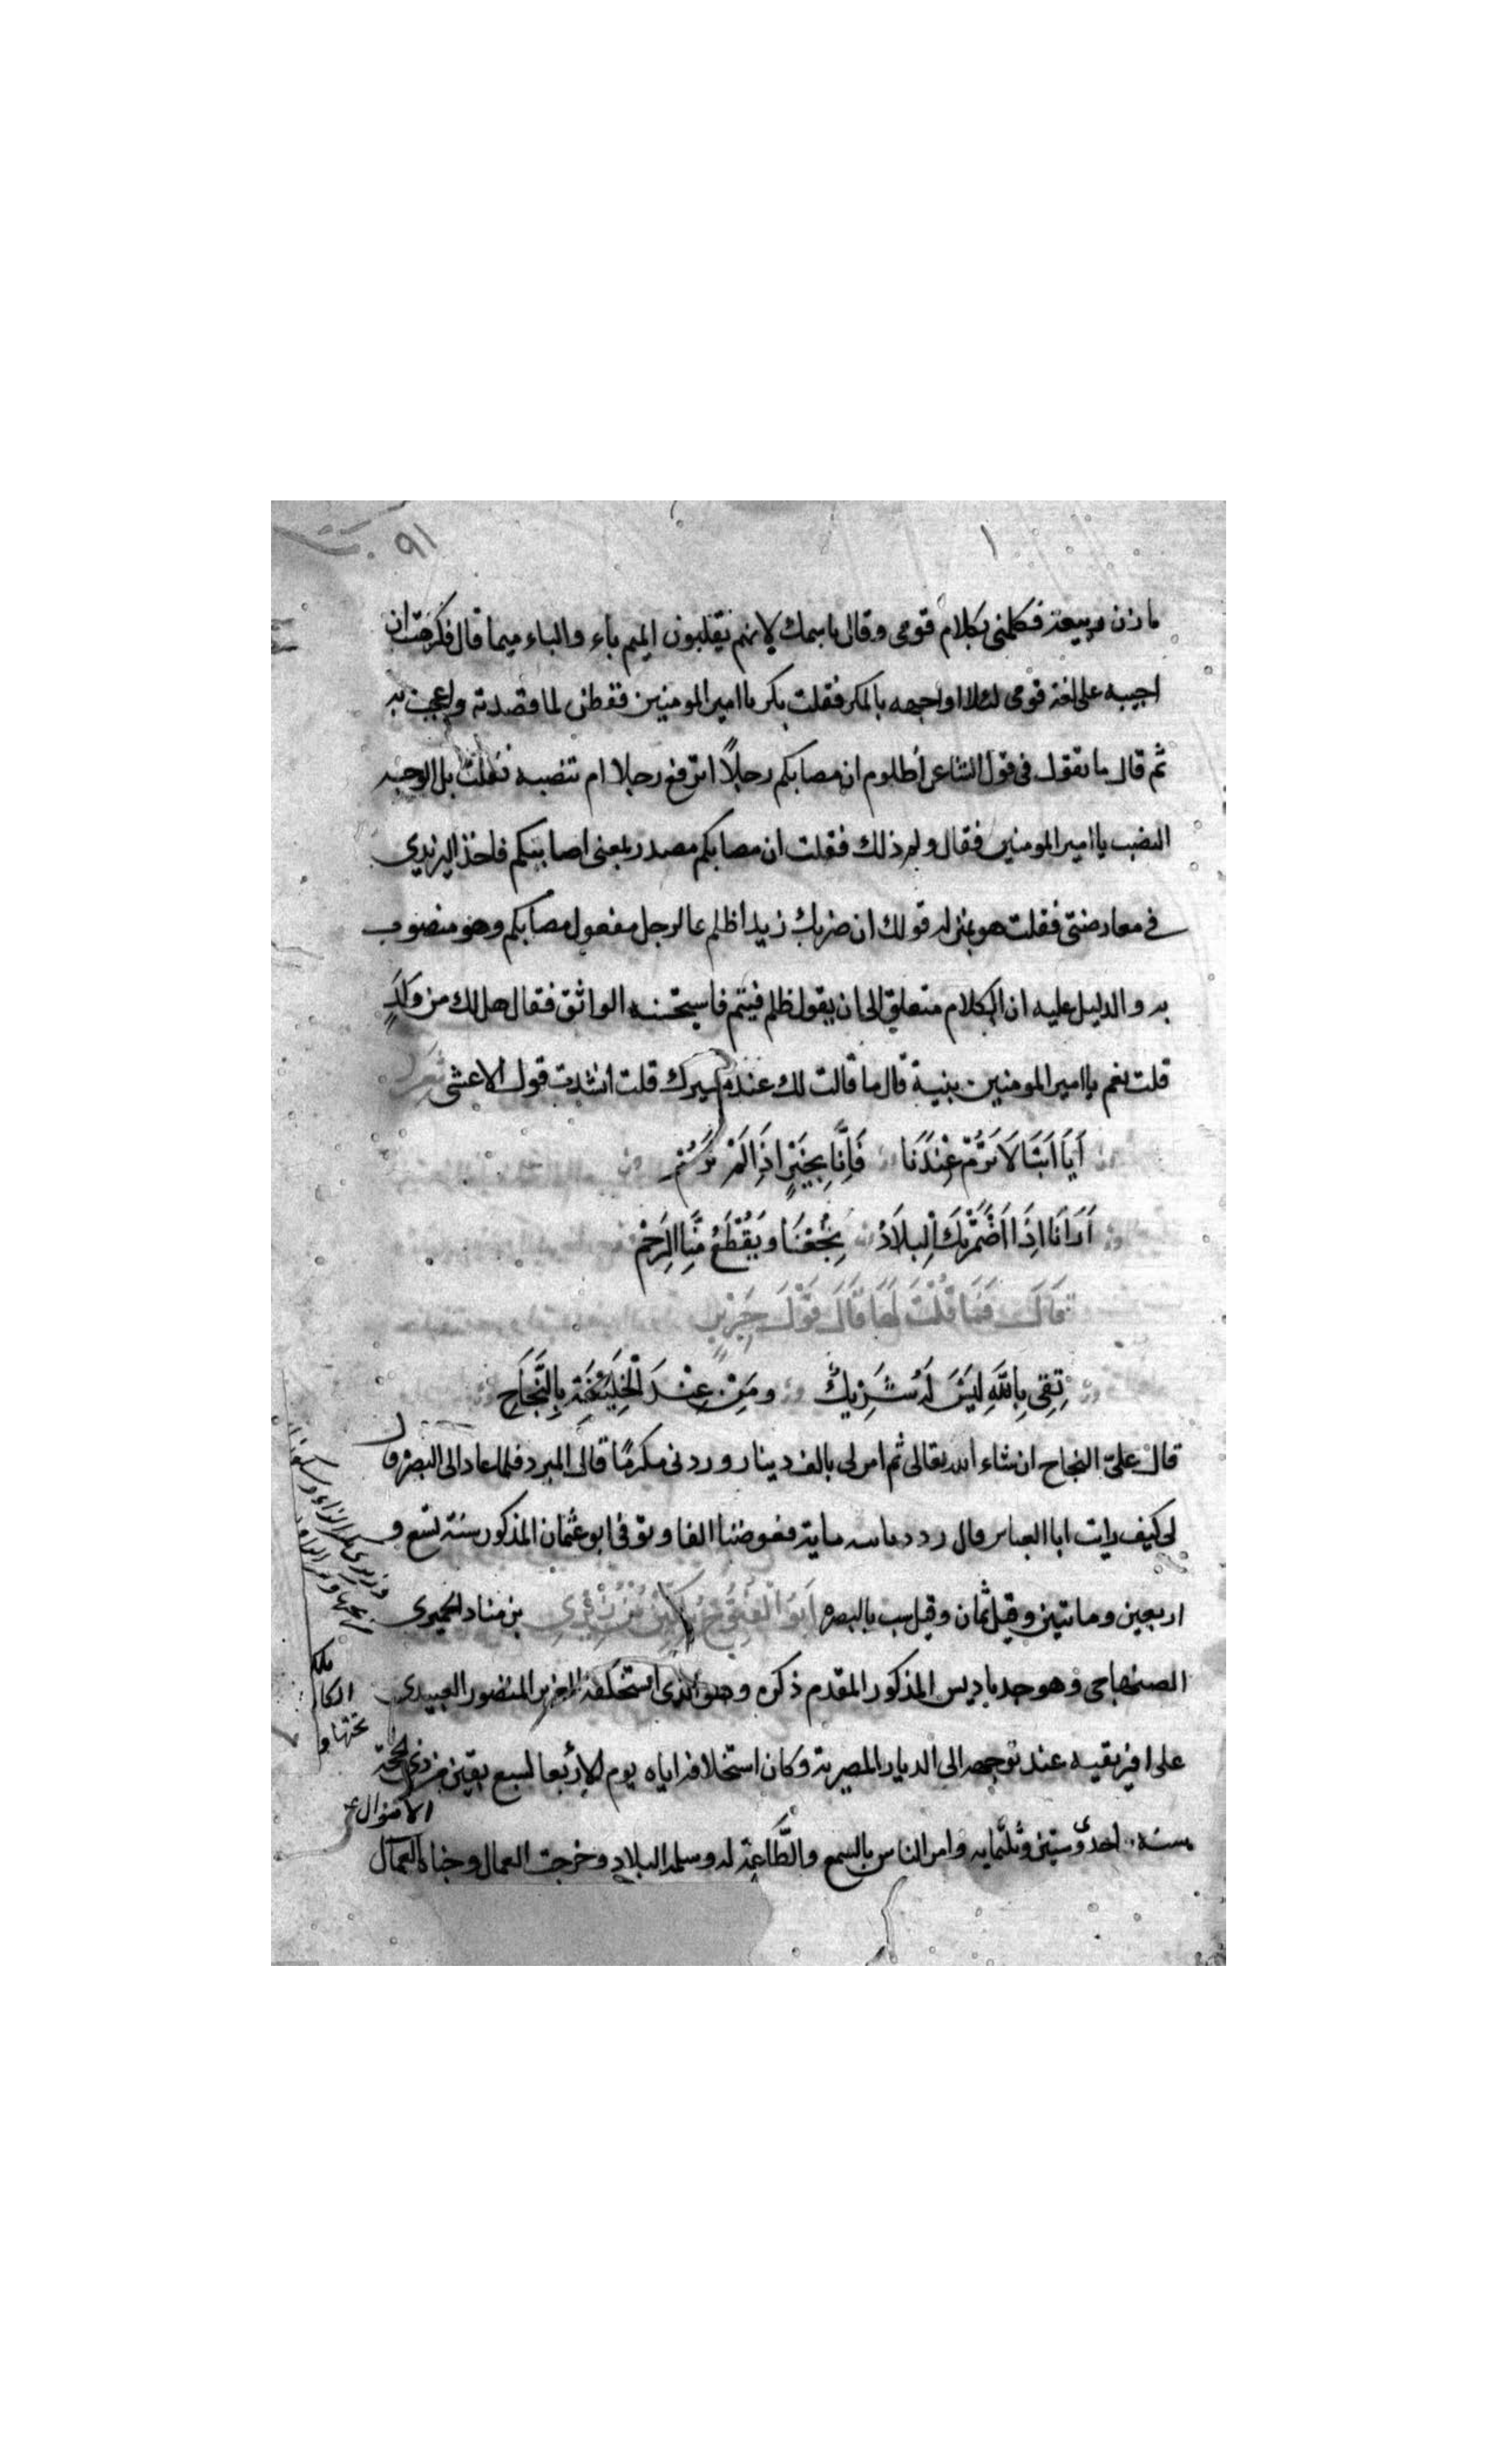 ٩١
مازن ربيعة فكلمنى بكلام قومى وقال باسمك لانهم يقلبون الميم باء والباء ميما قال فكرهت ان
اجيبه على لغة قومى لئلا اواجهه بالمكر فقلت بكر يا امير المومنين ففطن لما قصدته واعجب به
ثم قال ما تقول فى قول الشاعر أظلوم ان مصابكم رجلاً اترفع رجلا ام تنصبه فقلت بل الوجه
النصب يا امير المومنين فقال ولم ذلك فقلت ان مصابكم مصدر بمعنى اصابتكم فاخذ اليزيدى
فى معارضتى فقلت هو بمنزلة قولك ان ضربك زيدا ظلم فالرجل مفعول مصابكم وهو منصوب
به والدليل عليه ان الكلام متعلق الى ان يقول ظلم فيتم فاستحسنه الواثق فقال هل لك من وَلَدٍ
قلت نعم يا امير المومنين بنية قال ما قالت لك عند مسيرك قلت انشدت قول الاعشى
أَيَا أَبَتَا لَا تَرُمْ عِنْدَنَا فَإِنَّا بِخَيْرٍ اِذَا لَمْ تَرُمْ
أَرَانَا اِذَا اَضْمَرَتْكَ الْبِلَادُ نُجْفَا وَيُقْطَعُ مِنَّا الرَّحِمْ
قَالَ فَمَا قُلْتَ لَهَا قَالَ قَوْلَ جَرِيْرٍ
ثِقِى بِاللّٰهِ لَيْسَ لَهُ شَرِيْكٌ ومَنْ عِنْدَ الْخَلِيْفَةِ بِالنَّجَاحِ
قال علىّ النجاح ان شاء الله تعالى ثم امر لى بالف دينار وردنى مكرمًا قال المبرد فلما عاد الى البصرة قال
لى كيف رايت ابا العباس رددنا لله ماية فعوضنا الفا وتوفى ابو عثمان المذكور سنة تسع و
اربعين وماتين وقيل ثمان وقيل ست بالبصره اَبُوْ الْفُتُوْحِ بُلُكِّيْن بْن زِيْرِى بن مناد الحميرى
الصنهاجى وهو جد باديس المذكور المقدم ذكره وهو الذى استخلفه المعز بن المنصور العبيدى
على افريقيه عند توجهه الى الديار المصرية وكان استخلافه اياه يوم الاربعا لسبع بقين من ذى الحجة
سنة احدى وستين وثلثمايه وامر الناس بالسمع والطَّاعة له وسلم البلاد وخرجت العمال وجباة
الاموال